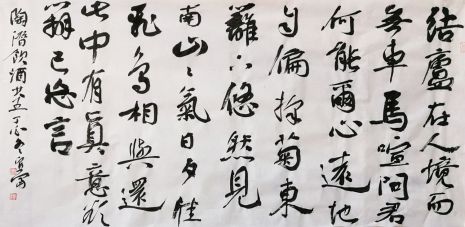 結廬在人境而
無車馬喧問君
何能爾心遠地
自偏採菊東
籬下悠然見
南山〻氣日夕佳
飛鳥相與還
此中有真意欲
辨已忘言
陶潛飲酒其五